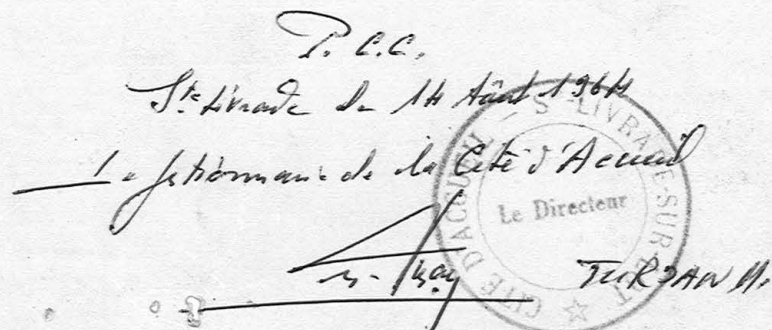 P. C.C.
Ste Livrade le 14 Août 1964
Le gestionnaire de la Cité d'Accueil
CITE D'ACCUEIL - Ste LIVRADE-SUR-LOT
Le Directeur
TURJAN M.